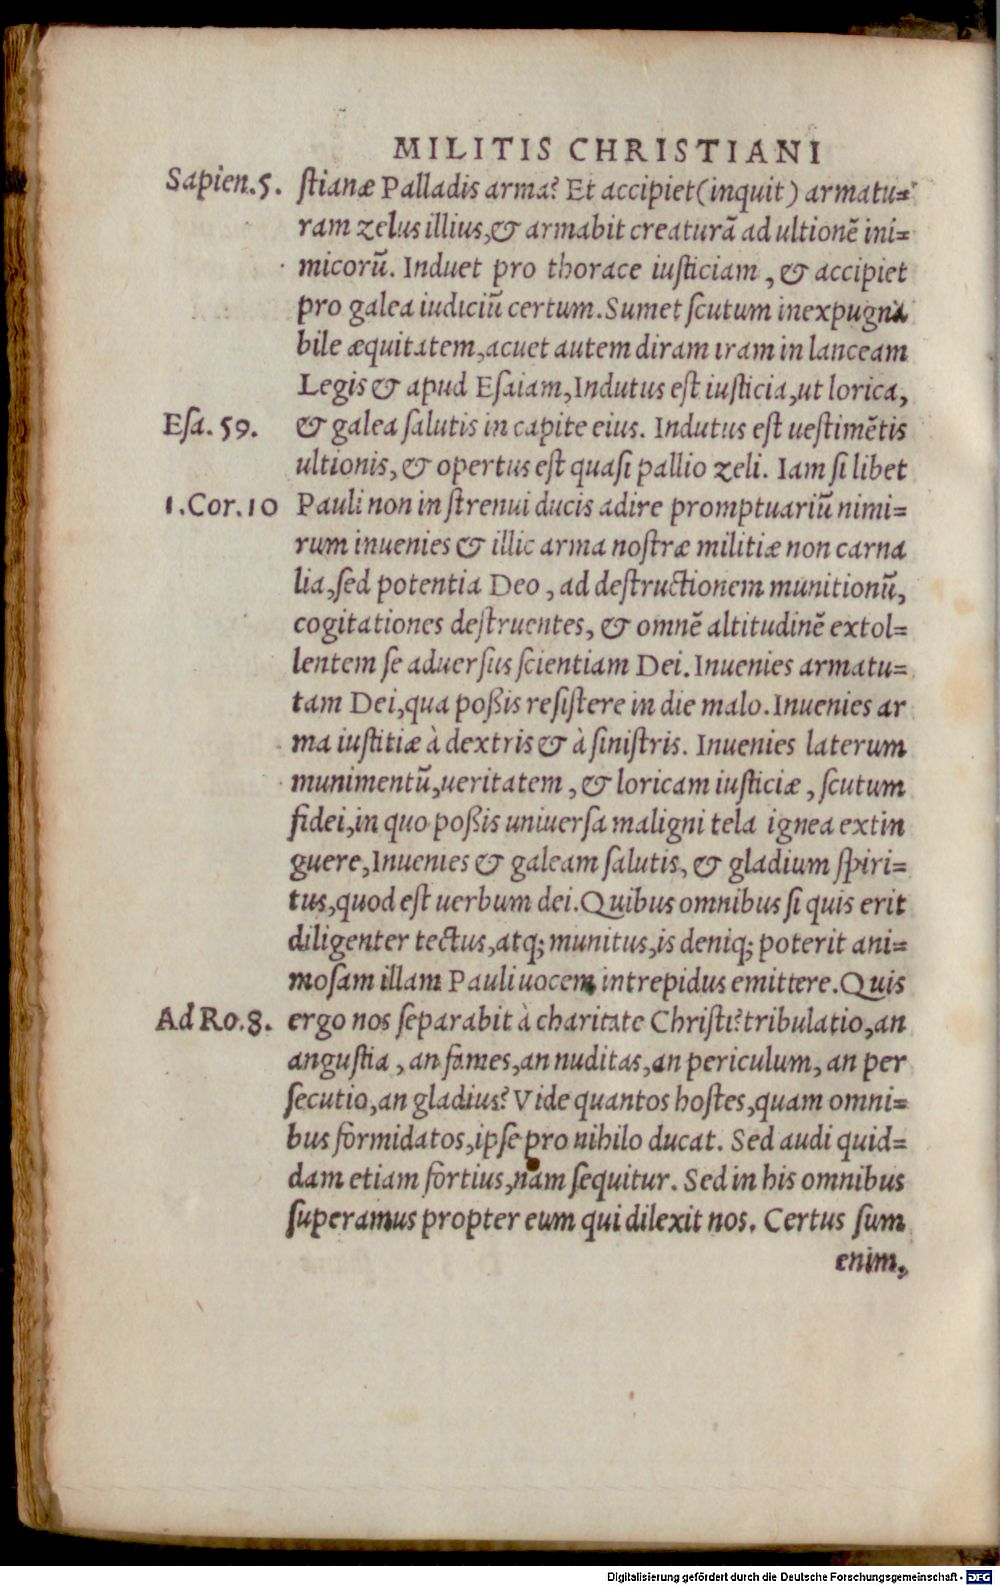 MILITIS CHRISTIANI
Sapien.5. stianæ Palladis arma? Et accipiet (inquit) armatu=
ram zelus illius, & armabit creaturã ad ultionẽ ini=
micorũ. Induet pro thorace iusticiam, & accipiet
pro galea iudiciũ certum. Sumet scutum inexpugna
bile æquitatem, acuet autem diram iram in lanceam
Legis & apud Esaiam, Indutus est iusticia, ut lorica,
Esa. 59. & galea salutis in capite eius. Indutus est uestimẽtis
ultionis, & opertus est quasi pallio zeli. Iam si libet
1.Cor.10 Pauli non instrenui ducis adire promptuariũ nimi=
rum inuenies & illic arma nostræ militiæ non carna
lia, sed potentia Deo, ad destructionem munitionũ,
cogitationes destruentes, & omnẽ altitudinẽ extol=
lentem se aduersus scientiam Dei. Inuenies armatu=
tam Dei, qua poßis resistere in die malo. Inuenies ar
ma iustitiæ à dextris & à sinistris. Inuenies laterum
munimentũ, ueritatem, & loricam iusticiæ, scutum
fidei, in quo poßis uniuersa maligni tela ignea extin
guere, Inuenies & galeam salutis, & gladium spiri=
tus, quod est uerbum dei. Quibus omnibus si quis erit
diligenter tectus, atq; munitus, is deniq; poterit ani=
mosam illam Pauli uocem intrepidus emittere. Quis
Ad Ro.8. ergo nos separabit à charitate Christi? tribulatio, an
angustia, an fames, an nuditas, an periculum, an per
secutio, an gladius? Vide quantos hostes, quam omni=
bus formidatos, ipse pro nihilo ducat. Sed audi quid=
dam etiam fortius, nam sequitur. Sed in his omnibus
superamus propter eum qui dilexit nos. Certus sum
enim,
Digitalisierung gefördert durch die Deutsche Forschungsgemeinschaft - DFG